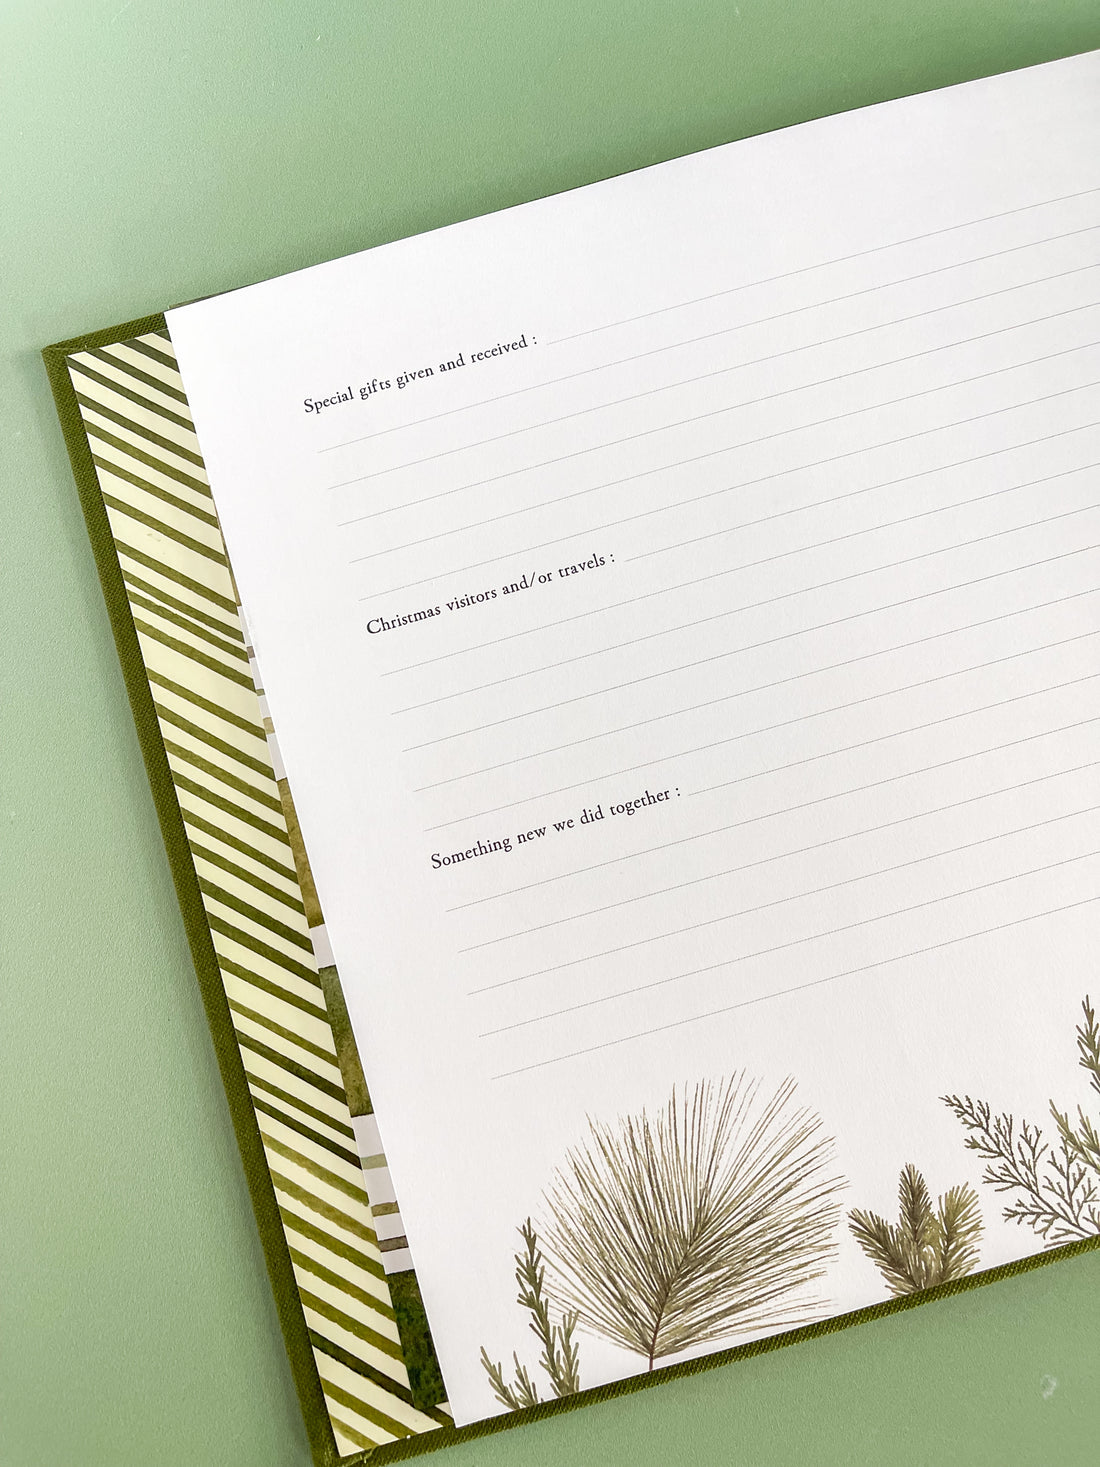 Special gifts given and received :
Christmas visitors and/or travels :
Something new we did together :